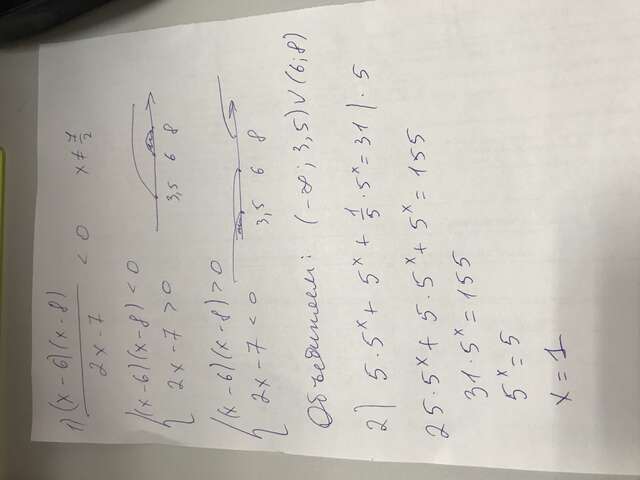 1) (x-6)(x-8) / 2x-7 < 0 x ≠ 7/2
{ (x-6)(x-8) < 0
2x-7 > 0
3,5 6 8
{ (x-6)(x-8) > 0
2x-7 < 0
3,5 6 8
Объединяем: (-∞; 3,5) ∨ (6; 8)
2) 5·5^x + 5^x + 1/5·5^x = 31 | · 5
25·5^x + 5·5^x + 5^x = 155
31·5^x = 155
5^x = 5
x = 1